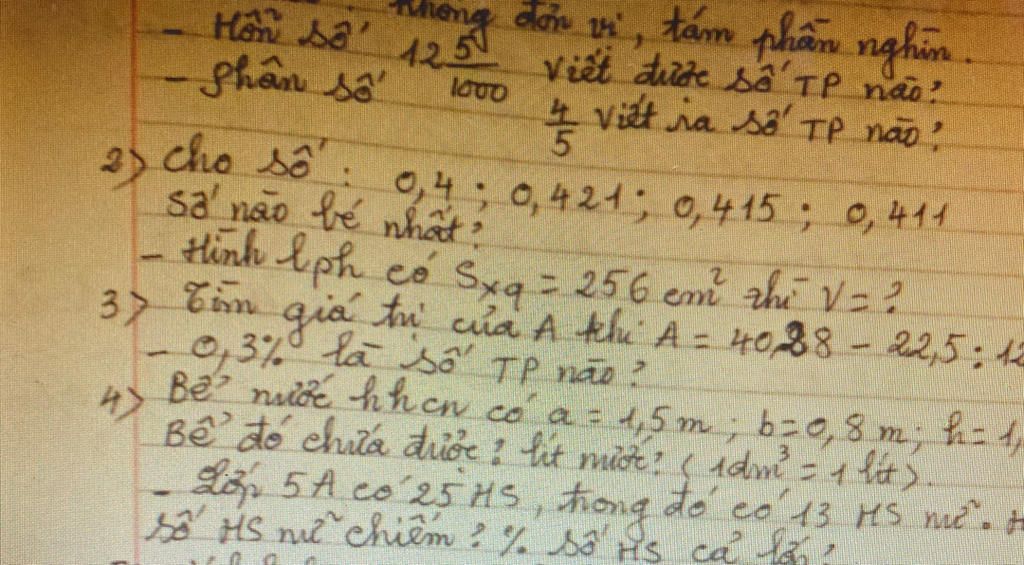 không đơn vị, tám phần nghìn.
- Hỗn số 12 5/1000 viết được số TP nào?
- Phân số 4/5 viết ra số TP nào?
2) Cho số : 0,4 ; 0,421 ; 0,415 ; 0,411
Số nào bé nhất?
- Hình lph có Sxq = 256 cm² thì V = ?
3) Tìm giá trị của A khi A = 40,28 - 22,5 : 12
- 0,3% là số TP nào?
4) Bể nước hhcn có a = 1,5 m ; b = 0,8 m ; h = 1,
Bể đó chứa được ? lít nước? (1dm³ = 1 lít).
- Lớp 5A có 25 HS, trong đó có 13 HS nữ. H
số HS nữ chiếm ? % số HS cả lớp?